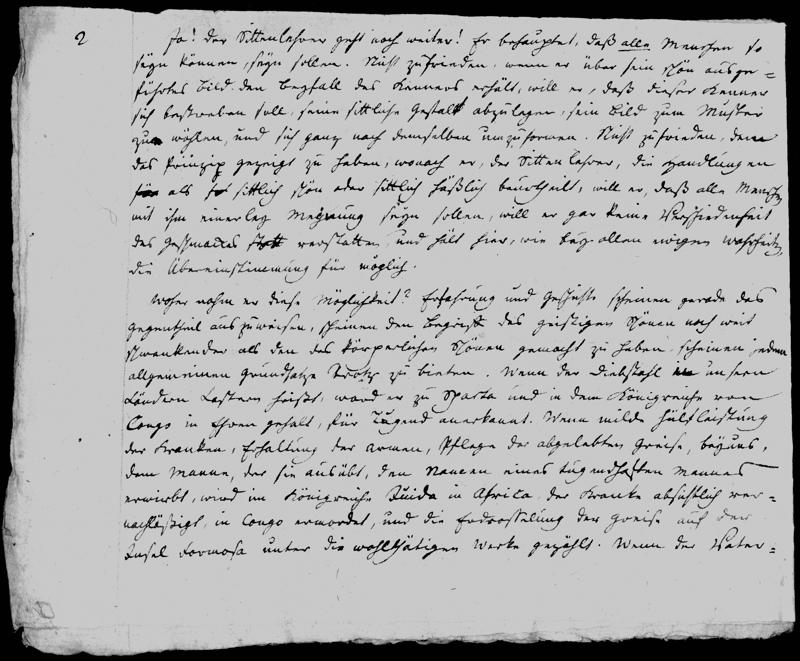 2
Ja! der Sittenlehrer geht noch weiter! Er behauptet, daß alle Menschen so
seyn können, seyn sollen. Nicht zufrieden, wenn er über sein schön ausge=
führtes Bild den Beyfall des Kenners erhält, will er, daß dieser Kenner
sich bestreben soll, seine sittliche Gestalt abzulegen, sein Bild zum Muster
zu wählen, und sich ganz nach demselben umzuformen. Nicht zufrieden, denen
das Prinzip gezeigt zu haben, wonach er, der Sittenlehrer, die Handlungen
als sittlich schön oder sittlich häßlich beurtheilt, will er, daß alle Menschen
mit ihm einerley Meynung seyn sollen, will er gar keine Verschiedenheit
des Geschmackes verstatten, und hält hier, wie bey allen ewigen Wahrheiten,
die Übereinstimmung für möglich.
Woher nahm er diese Möglichkeit? Erfahrung und Geschichte scheinen gerade das
Gegentheil auszuweisen, scheinen den Begriff des geistigen Schönen noch weit
schwankender als den des körperlichen Schönen gemacht zu haben, scheinen jedem
allgemeinen Grundsatze Trotz zu bieten. Wenn der Diebstahl in unsern
Ländern Laster heißt, ward er zu Sparta und in dem Königreiche von
Congo in Ehren gehalt, für Tugend anerkannt. Wenn milde Hülfleistung
der Kranken, Erhaltung der Armen, Pflege der abgelebten Greise, bey uns,
dem Manne, der sie ausübt, den Namen eines tugendhaften Mannes
erwirbt, wird im Königreiche Juida in Africa der Kranke absichtlich ver=
nachläßigt, in Congo ermordet, und die Erdrosselung der Greise auf der
Insel Formosa unter die wohlthätigen Werke gezählt. Wenn der Vater=